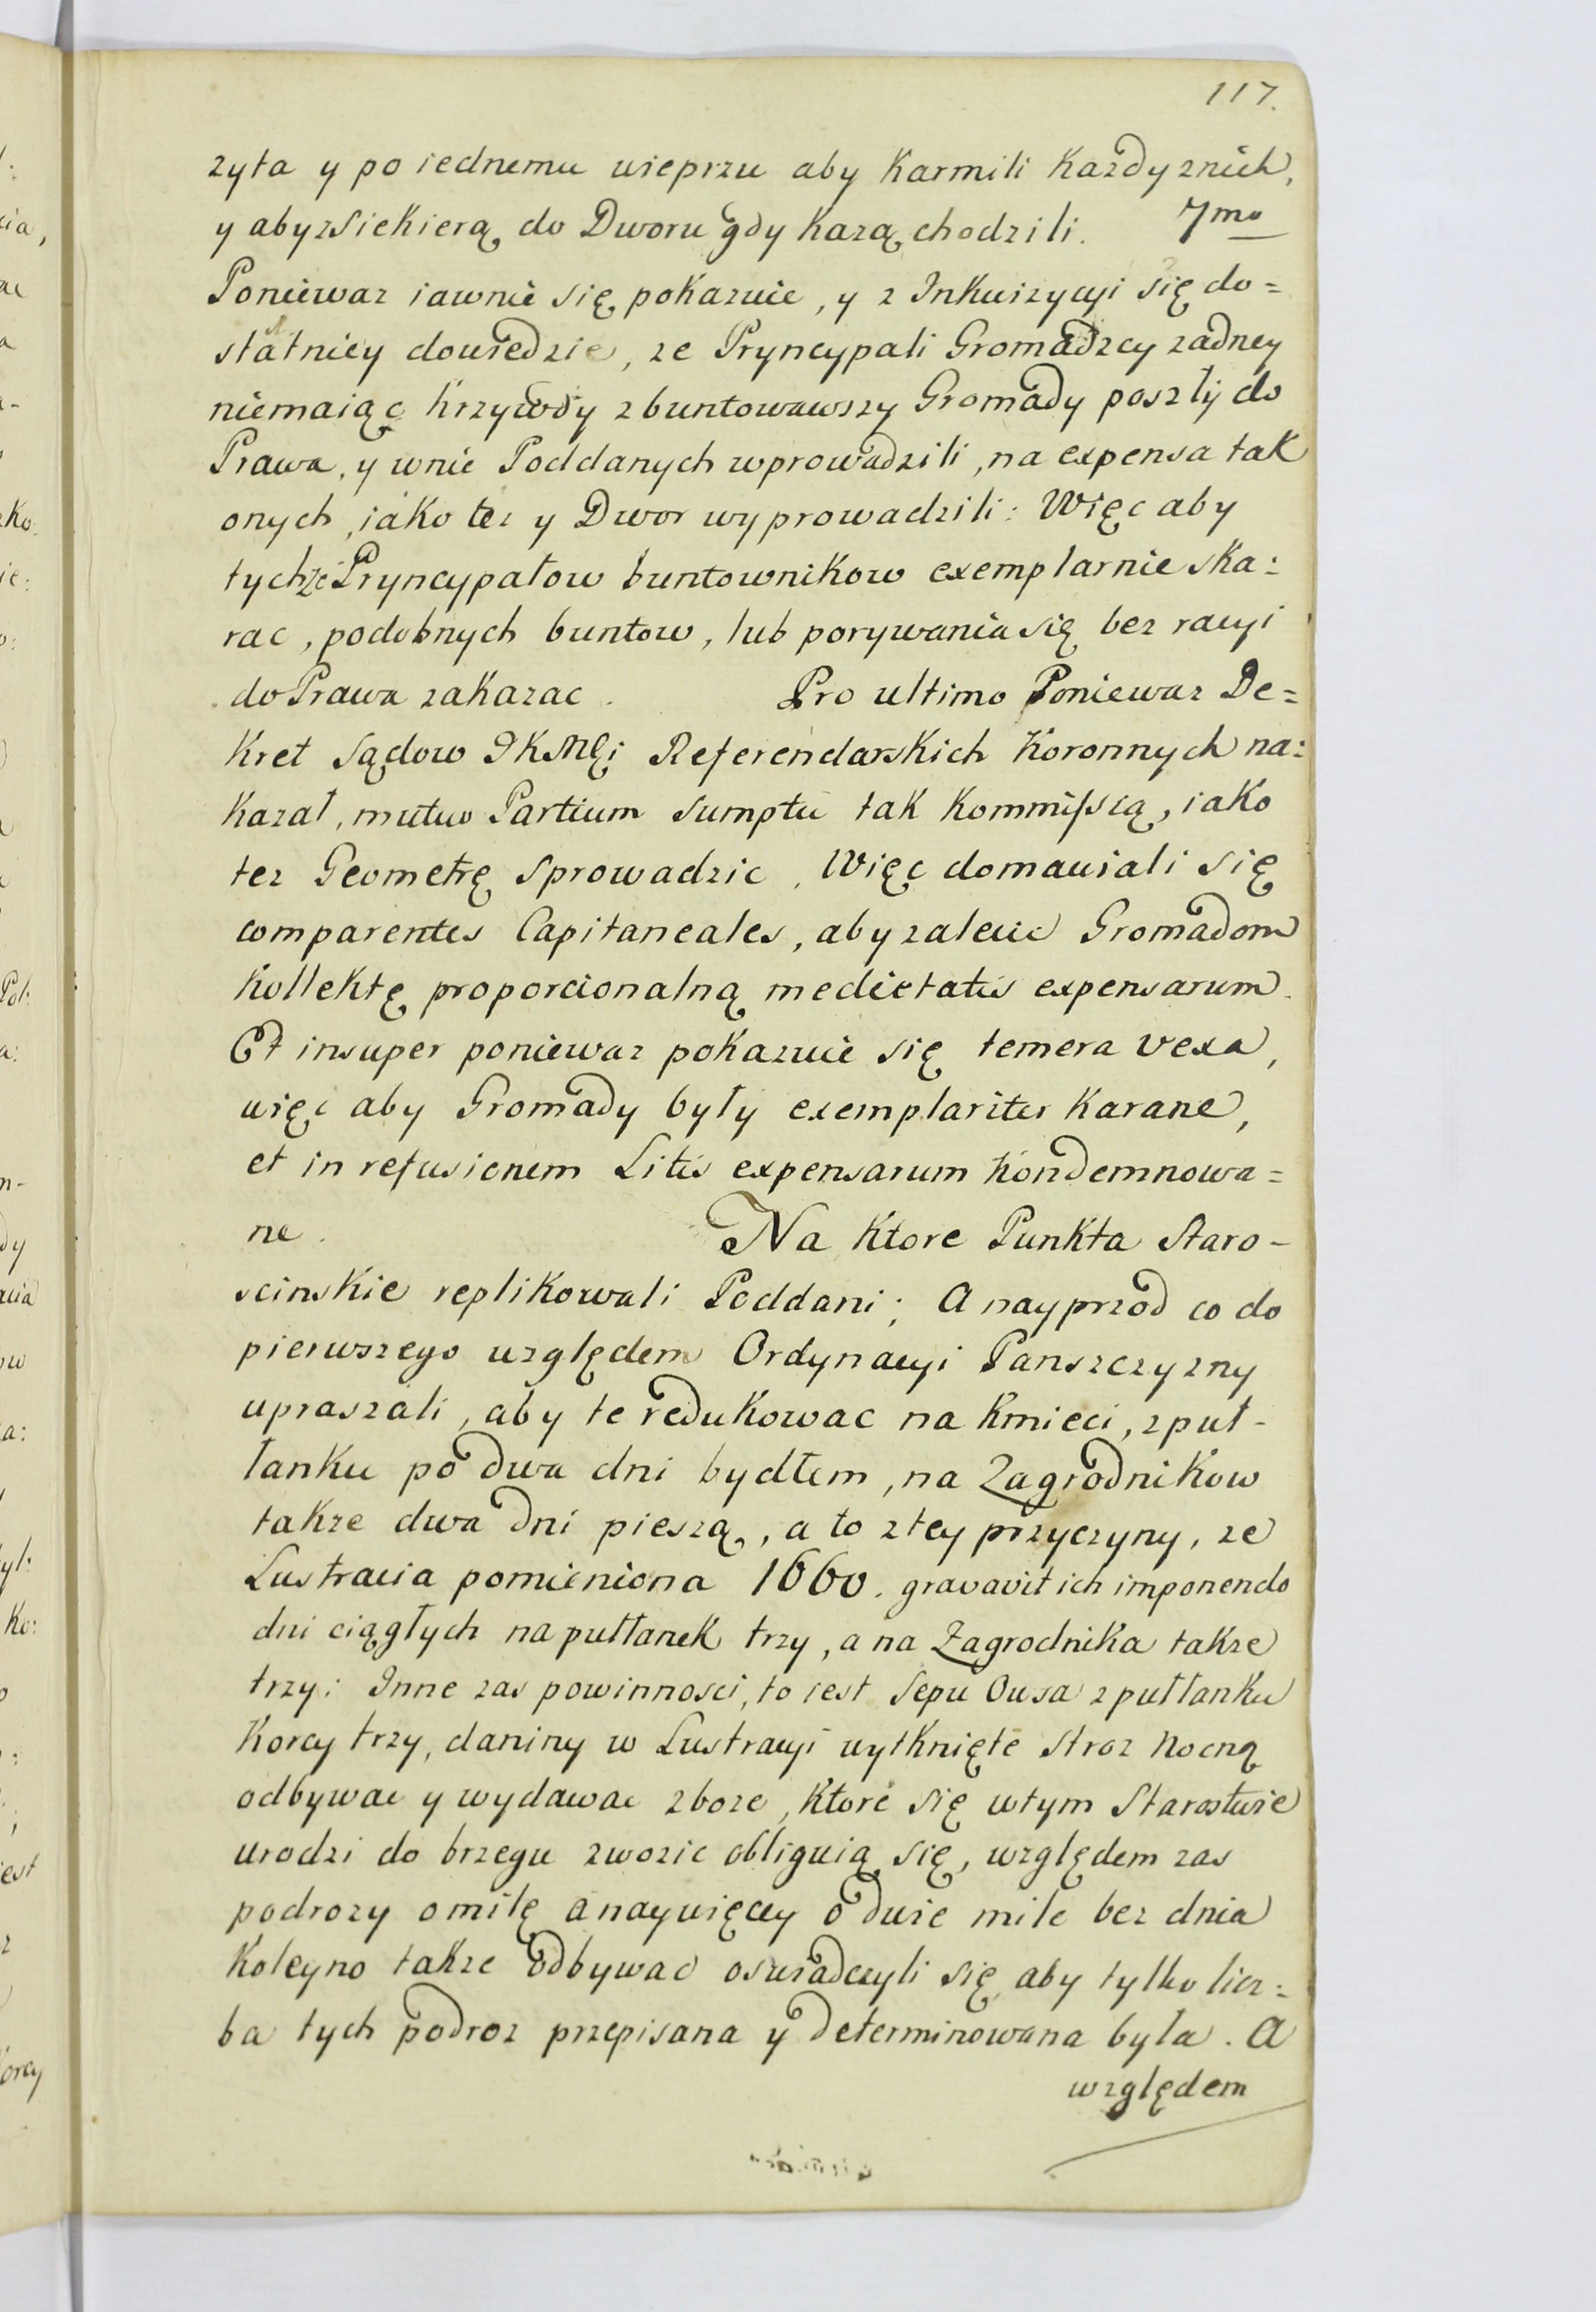 117.
zyta y po iednemu wieprzu aby Karmili Kazdy znich,
y aby zsiekierą do Dworu gdy Kazą chodzili. 7mo
Poniewaz iawnie się pokazuie, y z Inkwizycyi się do=
statniey dowiedzie, ze Pryncypali Gromadzcy zadney
niemaiąc Krzywdy zbuntowawszy Gromady poszły do
Prawa, y wnie Poddanych wprowadzili, na expensa tak
onych, iako tez y Dwor wyprowadzili: Więc aby
tychże Pryncypałow buntownikow exemplarnie ska:
rac, podobnych buntow, lub porywania się bez racyi
do Prawa zakazac. Pro ultimo Poniewaz De=
Kret Sądow JKMCi Referendarskich Koronnych na:
Kazał, mutuo Partium sumptu tak Kommissią, iako
tez Geometrę sprowadzic, Więc domawiali się
comparentes Capitaneales, aby zalecic Gromadom
Kollektę proporcionalną medietatis expensarum.
Et insuper poniewaz pokazuie się temera vexa,
więc aby Gromady były exemplariter Karane,
et in refusionem Litis expensarum Kondemnowa=
ne. Na Ktore Punkta Staro-
scinskie replikowali Poddani; A nayprzod co do
pierwszego względem Ordynacyi Panszczyzny
upraszali, aby te redukowac na Kmieci, zpuł-
łanku po dwa dni bydłem, na Zagrodnikow
takze dwa dni pieszą, a to ztey przyczyny, ze
Lustracia pomieniona 1660. gravavit ich imponendo
dni ciągłych na pułłanek trzy, a na Zagrodnika takze
trzy: Inne zas powinnosci, to iest Sepu Owsa zpułłanku
Korcy trzy, daniny w Lustracyi wytknięte Stroz Nocną
odbywac y wydawac zboze, Ktore się wtym Starostwie
urodzi do brzegu zwozic obliguią się, względem zas
podrozy o milę a naywięcey o dwie mile bez dnia
Koleyno takze odbywac oswiadczyli się, aby tylko licz:
ba tych podroz przepisana y determinowana była. A
względem